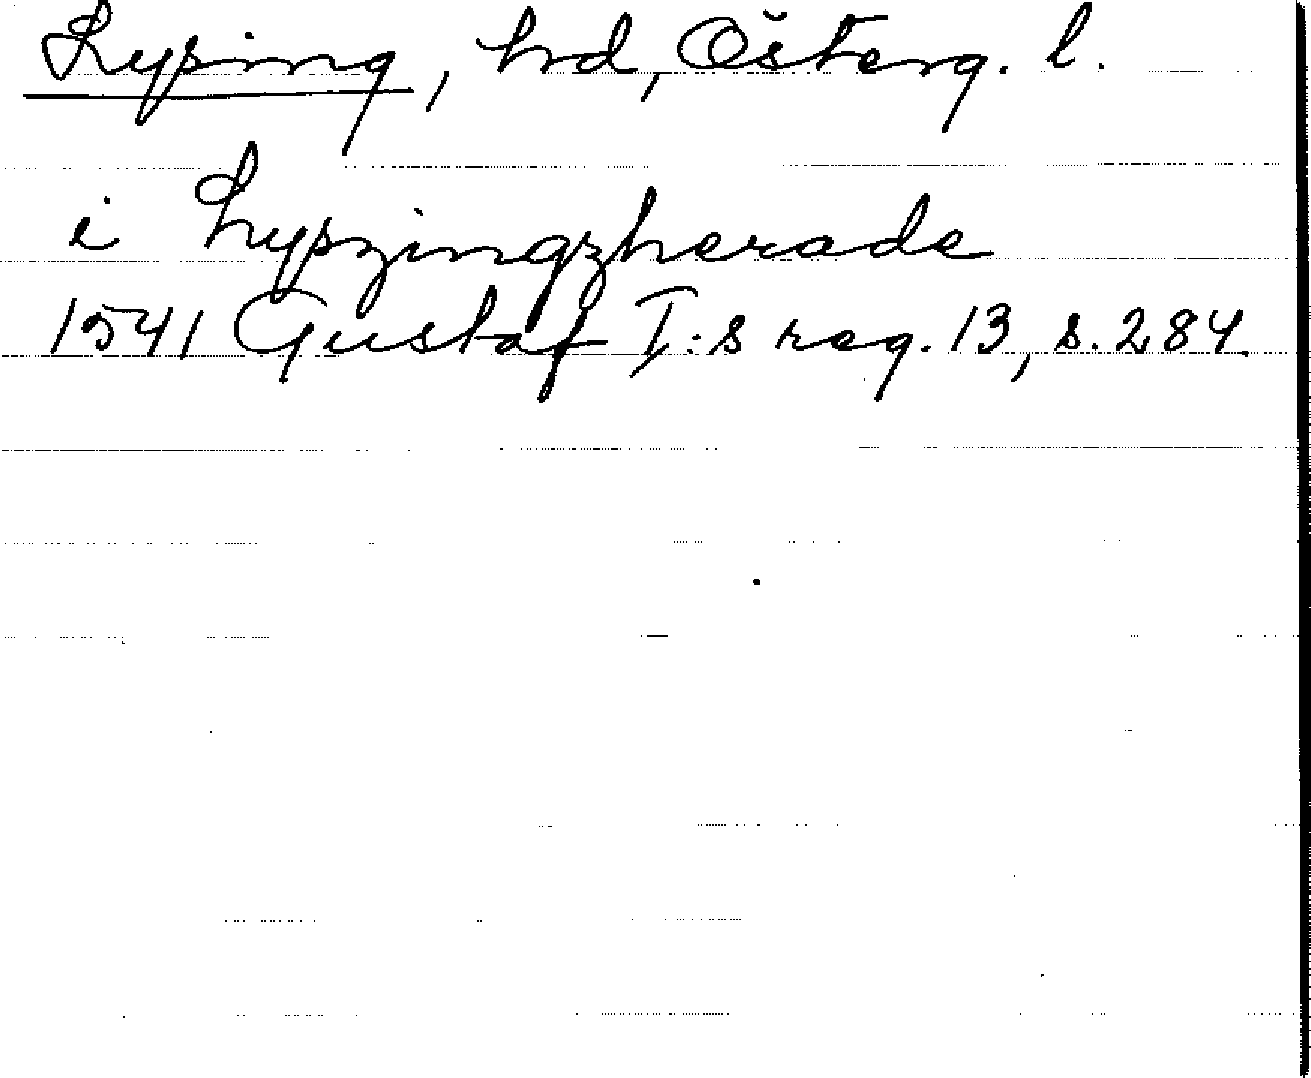 Lysing, hd, Österg. l.
i Lyszingzherade
1541 Gustaf I:s reg. 13, s. 284.